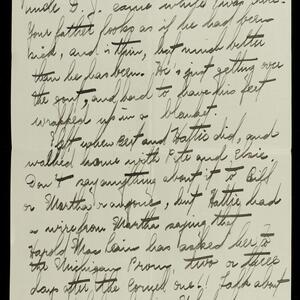 Uncle D. J. came while I was there.
Your father looks as if he had been
sick, and is thin, but much better
than he has been. He's just getting over
the gout, and had to have his feet
wrapped up in a blanket.
I left when Bert and Hattie did, and
walked home with Pete and Elsie.
Don't say anything about it to Bill
or Martha or anyone, but Hattie had
a wire from Martha saying that
Harold MacLain has asked her to
the Michigan Prom, two or three
days after the Cornell one! Talk about